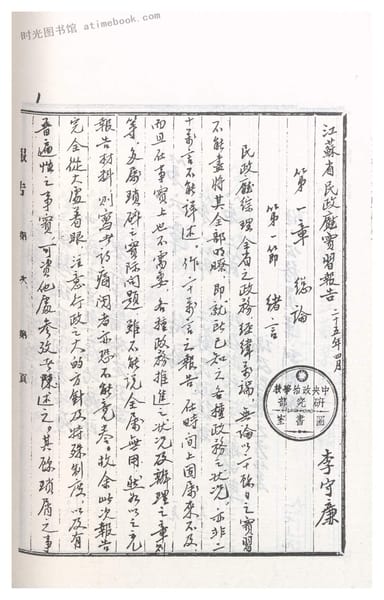 时光图书馆 atimebook.com
江蘇省民政廳實習報告 二十五年四月
李守廉
中央政治學校
研究部
圖書室
第一章 總論
第一節 緒言
民政廳綜理全省之政務經緯萬端無論以二十餘日之實習
不能盡將其全部明瞭即就此已知之各種政務之狀況亦非二
十萬言不能詳述。作二十萬言之報告在時間上固屬來不及
而且在事實上也不需要。各種政務推進之狀況及辦理之章則
等多屬瑣碎之實際問題雖不能說全屬無用然如以之充
報告材料則寫者閱者亦恐不能竟卷。故余此次報告
完全從大處着眼注意行政之大的方針及特殊制度以及有
普遍性之事實可資他處參攷者陳述之。其餘瑣屑之事